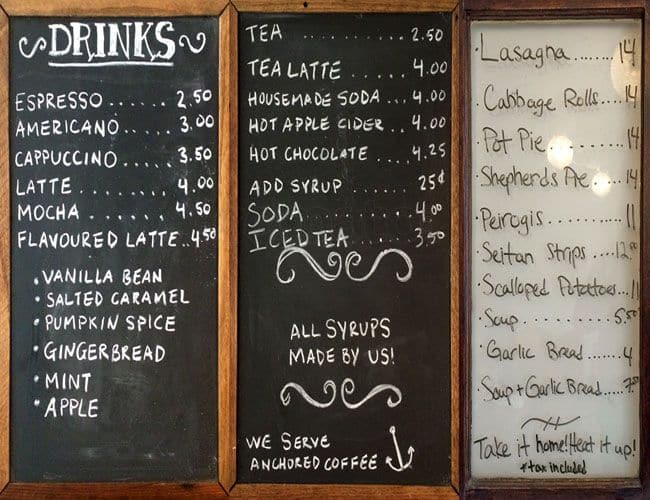 DRINKS
ESPRESSO...... 2.50
AMERICANO..... 3.00
CAPPUCCINO.... 3.50
LATTE ........ 4.00
MOCHA ...... 4.50
FLAVOURED LATTE..4.50
• VANILLA BEAN
• SALTED CARAMEL
• PUMPKIN SPICE
• GINGERBREAD
• MINT
• APPLE
TEA .......... 2.50
TEA LATTE ...... 4.00
HOUSEMADE SODA ... 4.00
HOT APPLE CIDER .. 4.00
HOT CHOCOLATE .... 4.25
ADD SYRUP ...... 25¢
SODA.......... 4.00
ICED TEA....... 3.50
ALL SYRUPS
MADE BY US!
WE SERVE
ANCHORED COFFEE
• Lasagna.......14
• Cabbage Rolls....14
• Pot Pie 14
• Shepherds Pie....14
• Peirogis.......... 11
• Seitan Strips ....12.00
• Scalloped Potatoes...11
• Soup......... 5.50
• Garlic Bread...... 4
• Soup + Garlic Bread....7.50
Take it home! Heat it up!
*tax included